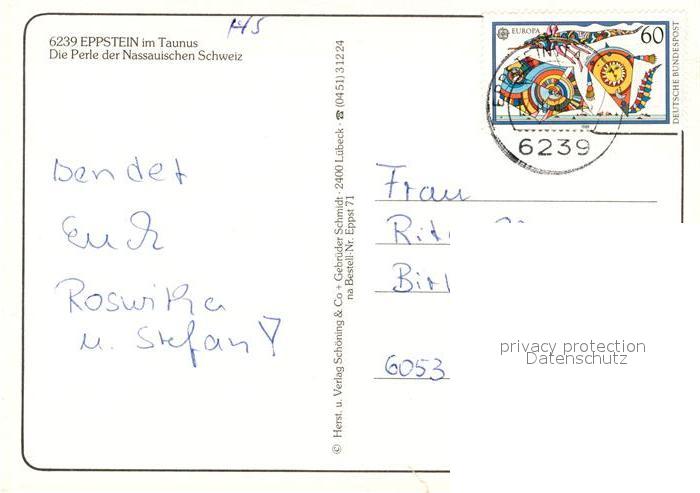 145
6239 EPPSTEIN im Taunus
Die Perle der Nassauischen Schweiz
EUROPA
60
DEUTSCHE BUNDESPOST
6239
sendet
Euch
Roswitha
u. Stefan
© Herst. u. Verlag Schöning & Co + Gebrüder Schmidt · 2400 Lübeck · ☎ (04 51) 3 12 24
na Bestell-Nr. Eppst 71
Frau
6053
privacy protection
Datenschutz